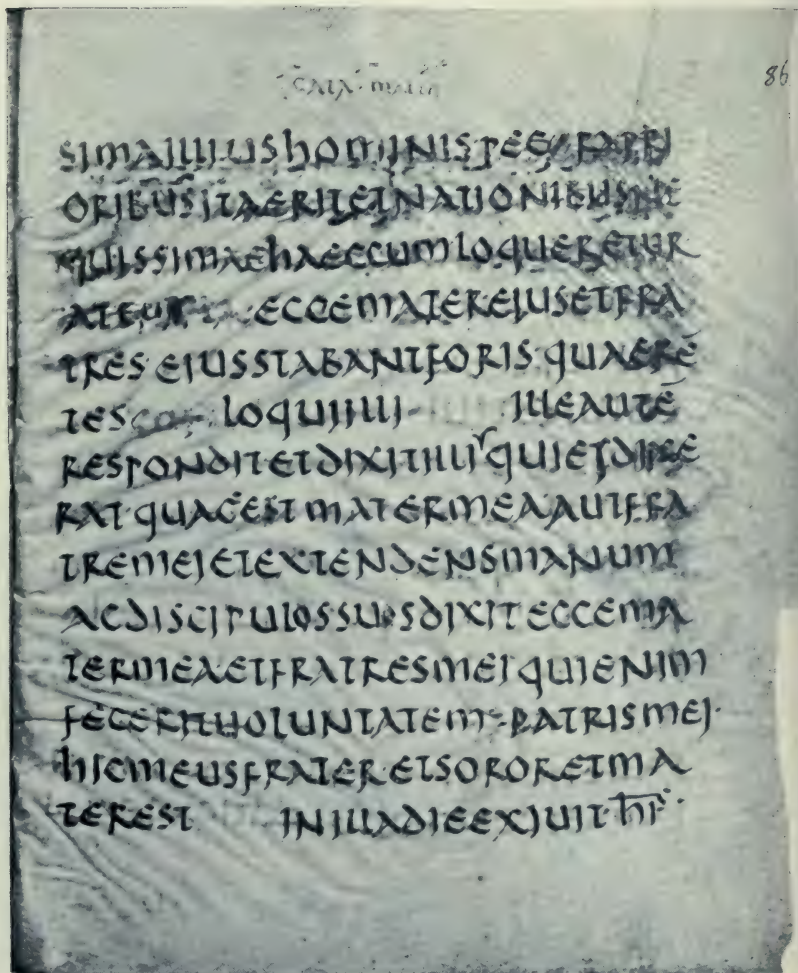 86
SIMAILLIUSHOMINIS
ORIBUSITAERITETNATIONIBUSNE
QUISSIMAEhAECCUMLOQUERETUR
ECCEMATEREIUSETFRA
TRESEIUSSTABANTFORISQUAERE̅
TES LOQUIILLI ILLEAUTE̅
RESPONDITETDIXITILLIQUIEIDIXE
RATQUAEESTMATERMEAAUTFRA
TREMEIETEXTENDENSMANUM
ACDISCIPULOSSUOSDIXITECCEMA
TERMEAETFRATRESMEIQUIENIM
FECERITUOLUNTATEM PATRISMEI·
hICMEUSFRATERETSORORETMA
TEREST INILLADIEEXIUIT